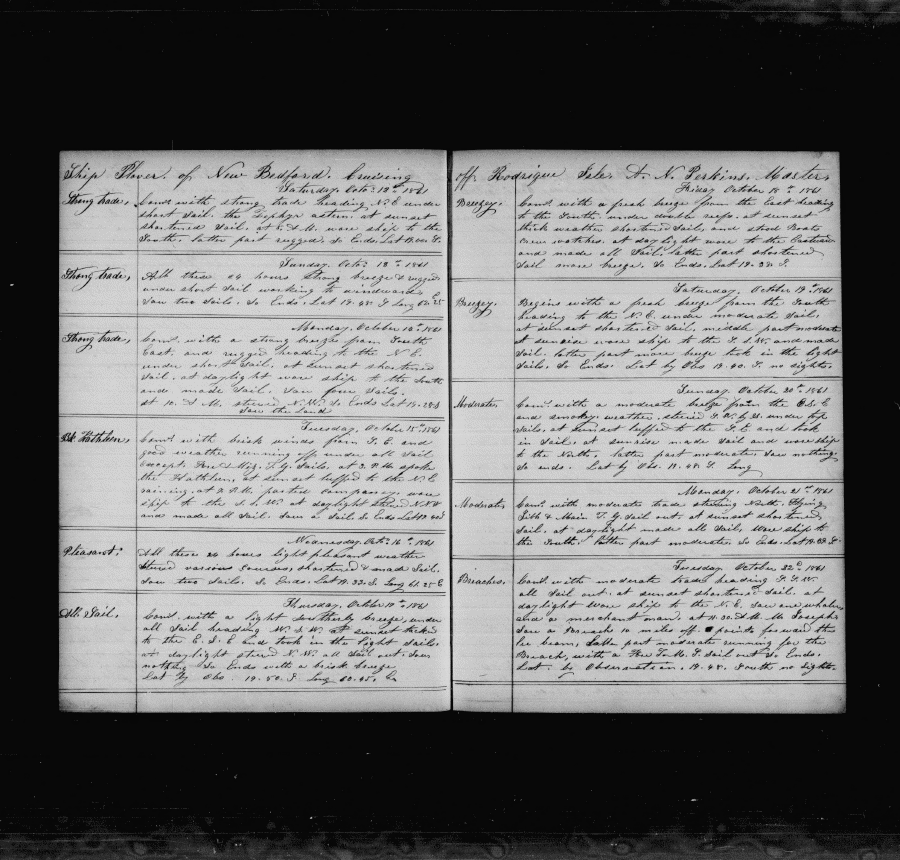 Ship Plover, of New Bedford. Cruising
Saturday. Oct. 12th 1861
Strong trade, Com'd with strong trade heading N.E under
short sail. the Zephyr astern. at sunset
shortened sail. at A.M. wore ship to the
South. latter part rugged So Ends. Lat
Sunday. Oct. 13th 1861
Strong trade, All these 24 hours strong breeze & rugged
under short sail working to windward
saw two sails. So Ends. Lat 19.48. S Long
Monday. October 14th 1861
Strong trade, Com'd with a strong breeze from South
East. and rugged heading to the N.E.
under short sail. at sunset shortened
sail. at daylight wore ship to the South
and made sail. saw four sails.
at 10. A.M. steered N.W. So Ends Lat 19.28 S
Saw the Land
Tuesday. October 15th 1861
Kathleen, Com'd with brisk winds from S.E. and
good weather running off under all sail
except Fore & Miz. T.G. Sails. at P.M. spoke
the Kathleen, at sunset luffed to the N.E
raining. at P.M. parted company. wore
ship to the S.S.W. at daylight steered N.N.W
and made all sail. saw a sail So Ends Lat
Wednesday. Oct. 16th 1861
Pleasant. All these 24 hours light pleasant weather
steered various courses, shortened & made sail.
saw two sails. So Ends. Lat 19.33. S. Long 61.25 E
Thursday. October 17th 1861
All Sail. Com'd with a light Southerly breeze, under
all sail heading W.S.W. at sunset
to the E.S.E and took in the light sails,
at daylight steered N.W. all sail out. saw
nothing So Ends with a brisk breeze
Lat by Obs. 19.50. S. Long 60.45.
off Rodrique Isle. A. N. Perkins. Master,
Friday October 18th 1861
Breezey. Com'd with a fresh breeze from the East heading
to the South under double reefs. at sunset
thick weather shortened sail, and stood Boats
crew watches. at daylight wore to the Eastward
and made all sail, latter part shortened
sail more breeze. So Ends. Lat 19.33. S.
Saturday, October 19th 1861
Breezey. Begins with a fresh breeze from the South
heading to the N.E. under moderate sail.
at sunset shortened sail. middle part moderate
at sunrise wore ship to the S.S.W. and made
sail. latter part more breeze took in the light
sails. So Ends. Lat by Obs 19.40. S. no sights.
Sunday October 20th 1861
Moderate. Com'd with a moderate breeze from the E.S.E
and smokey weather, steered under top
sails. at sunset luffed to the S.E and took
in sail. at sunrise made sail and wore ship
to the North. latter part moderate, saw nothing
So ends. Lat by Obs. 19.48. S. Long
Monday. October 21st 1861
Moderate Com'd with moderate trade steering North. Flying
Jib & Main T.G. Sail out. at sunset shortened
sail. at daylight made all sail. wore ship to
the South. latter part moderate. So Ends. Lat
Tuesday October 22d 1861
Breaches. Com'd with moderate trade heading S.S.W.
all sail out. at sunset shortened sail. at
daylight wore ship to the N.E. saw one whaler
and a merchant man. at 11.30 A.M. M. Joseph
saw a Breach 10 miles off. points forward the
lee beam. latter part moderate running for the
Breach, with a Fore T.M. S sail out So Ends.
Lat. by Observation. 19.48. South no sights